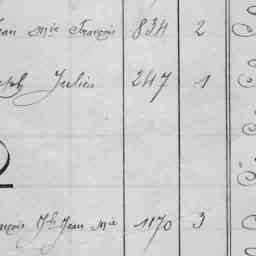 Jean Mie François 834 2
Joseph Julien 247 1
François Jh Jean Mie 1170 3